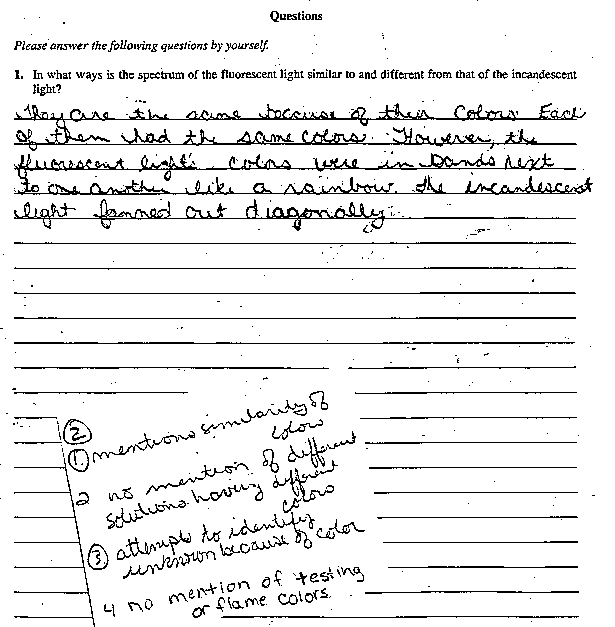 Questions
Please answer the following questions by yourself.
1. In what ways is the spectrum of the fluorescent light similar to and different from that of the incandescent
light?
They are the same because of their colors. Each
of them had the same colors. However, the
fluorescent light colors were in bands next
to one another like a rainbow. The incandescent
light fanned out diagonally.
2
1. mentions similarity of
color
2 no mention of different
solutions having different
colors
3 attempts to identify
unknown because of color
4 no mention of testing
or flame colors